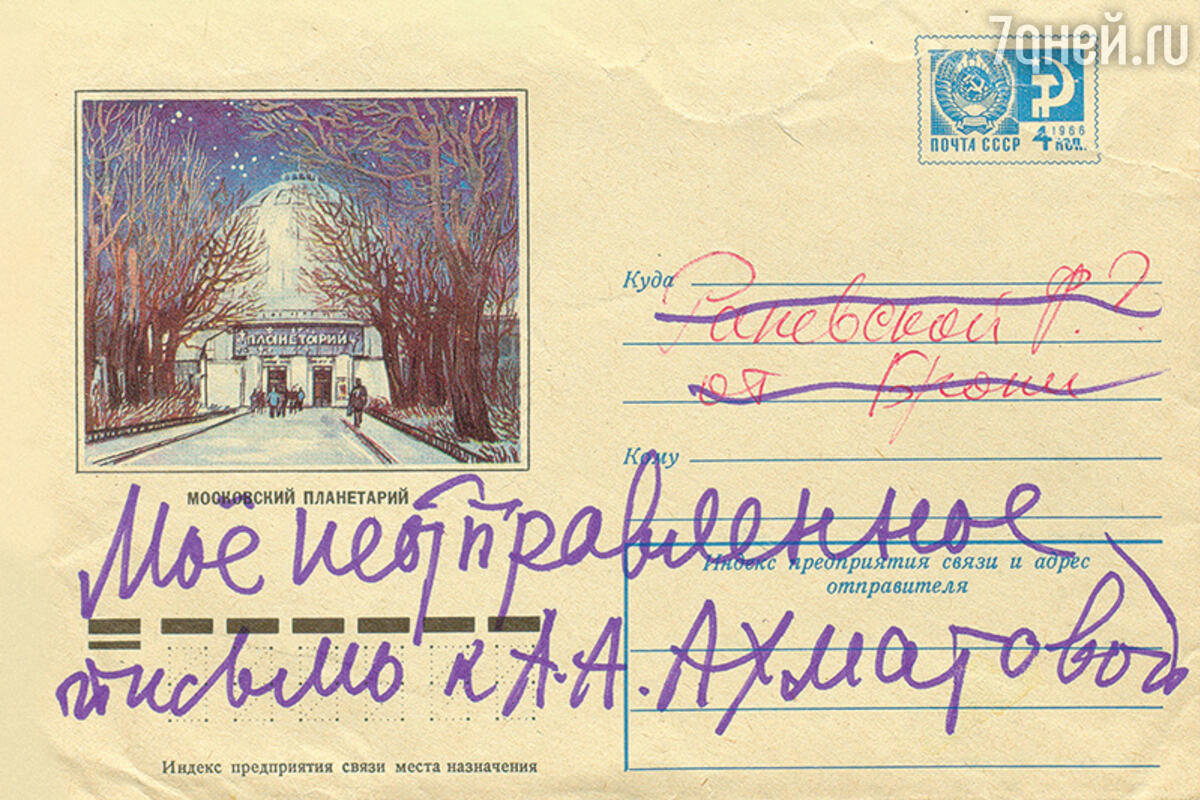 7дней.ru
ПОЧТА СССР
1966
4 КОП.
ПЛАНЕТАРИЙ
МОСКОВСКИЙ ПЛАНЕТАРИЙ
Куда
Раневской Ф. Г.
от Брони
Кому
Моё неотправленное
Индекс предприятия связи и адрес
отправителя
письмо к А.А. Ахматовой
Индекс предприятия связи места назначения